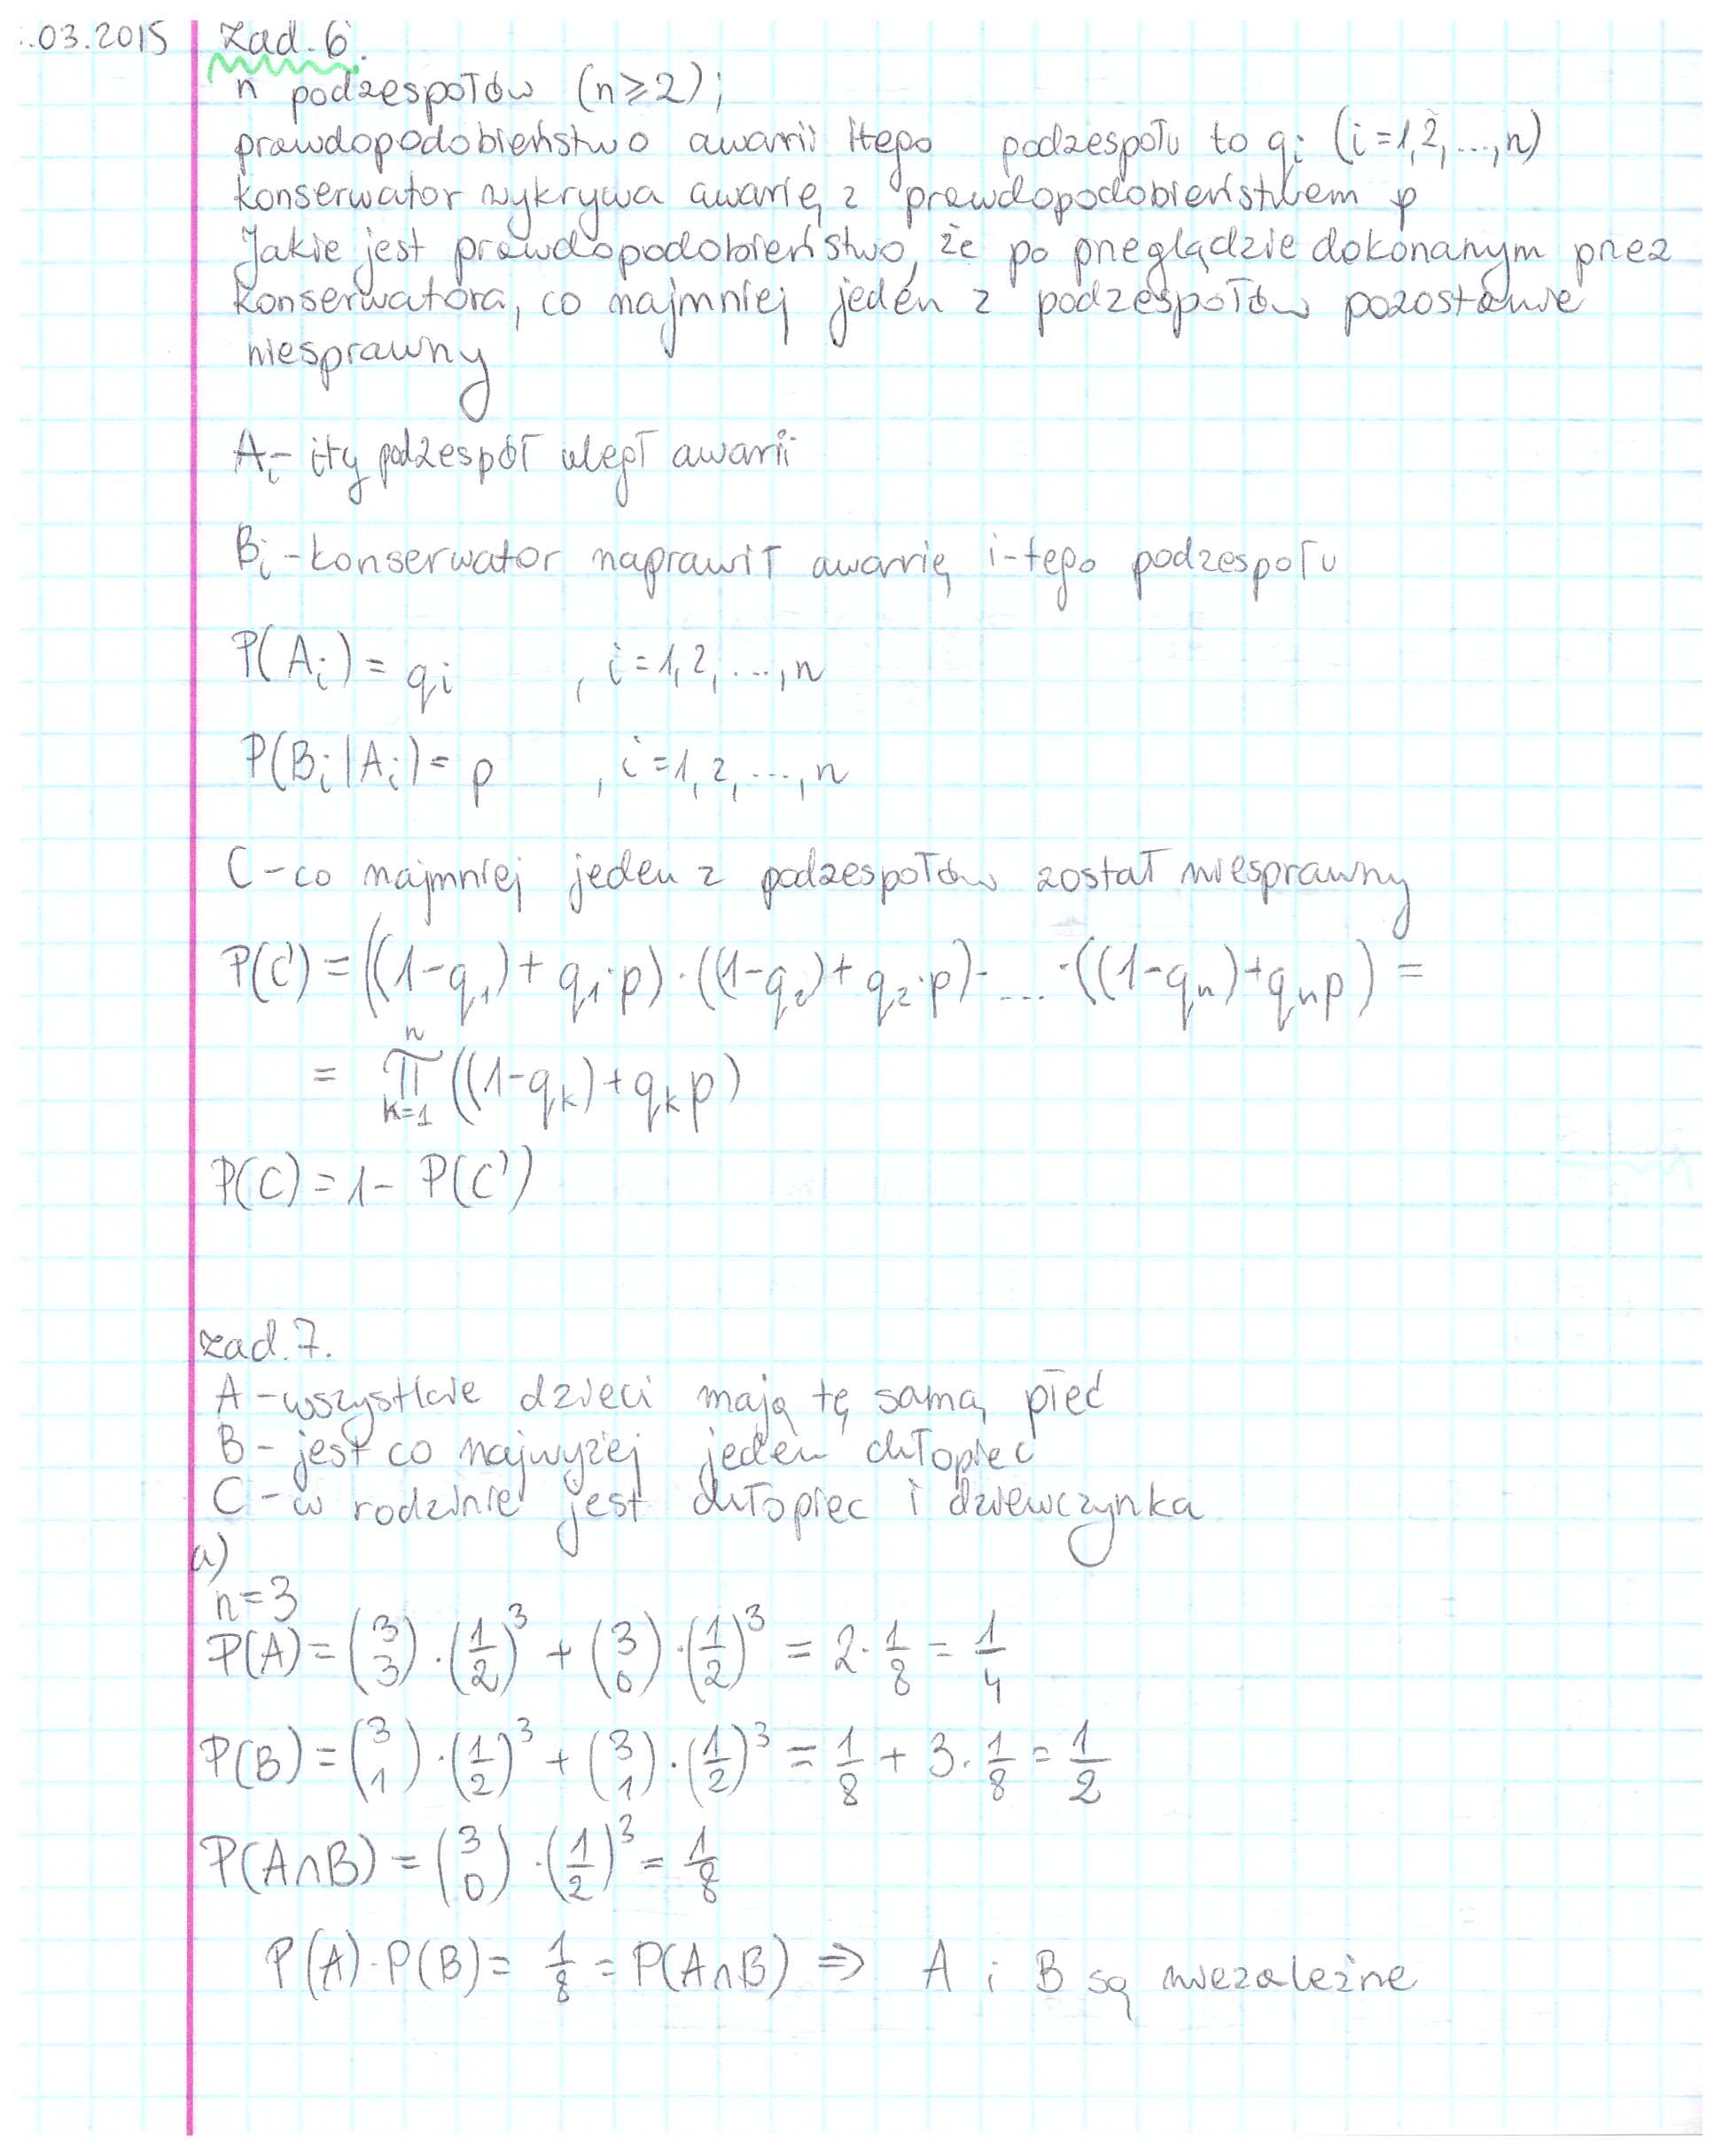 .03.2015
Zad. 6.
n podzespołów (n≥2);
prawdopodobieństwo awarii itego podzespołu to qᵢ (i=1,2,...,n)
konserwator wykrywa awarię z prawdopodobieństwem p
Jakie jest prawdopodobieństwo, że po przeglądzie dokonanym przez
konserwatora, co najmniej jeden z podzespołów pozostanie
niesprawny
Aᵢ - ity podzespół uległ awarii
Bᵢ - konserwator naprawił awarię i-tego podzespołu
P(Aᵢ) = qᵢ , i=1,2,...,n
P(Bᵢ|Aᵢ) = p , i=1,2,...,n
C - co najmniej jeden z podzespołów został niesprawny
P(C') = ((1-q₁)+q₁·p)·((1-q₂)+q₂·p)·...·((1-qₙ)+qₙp) =
= ∏ₖ₌₁ⁿ ((1-qₖ)+qₖp)
P(C) = 1- P(C')
zad. 7.
A - wszystkie dzieci mają tę samą płeć
B - jest co najwyżej jeden chłopiec
C - w rodzinie jest chłopiec i dziewczynka
a)
n=3
P(A) = (3 3)·(1/2)³ + (3 0)·(1/2)³ = 2·1/8 = 1/4
P(B) = (3 1)·(1/2)³ + (3 1)·(1/2)³ = 1/8 + 3·1/8 = 1/2
P(A∩B) = (3 0)·(1/2)³ = 1/8
P(A)·P(B) = 1/8 = P(A∩B) ⇒ A i B są niezależne